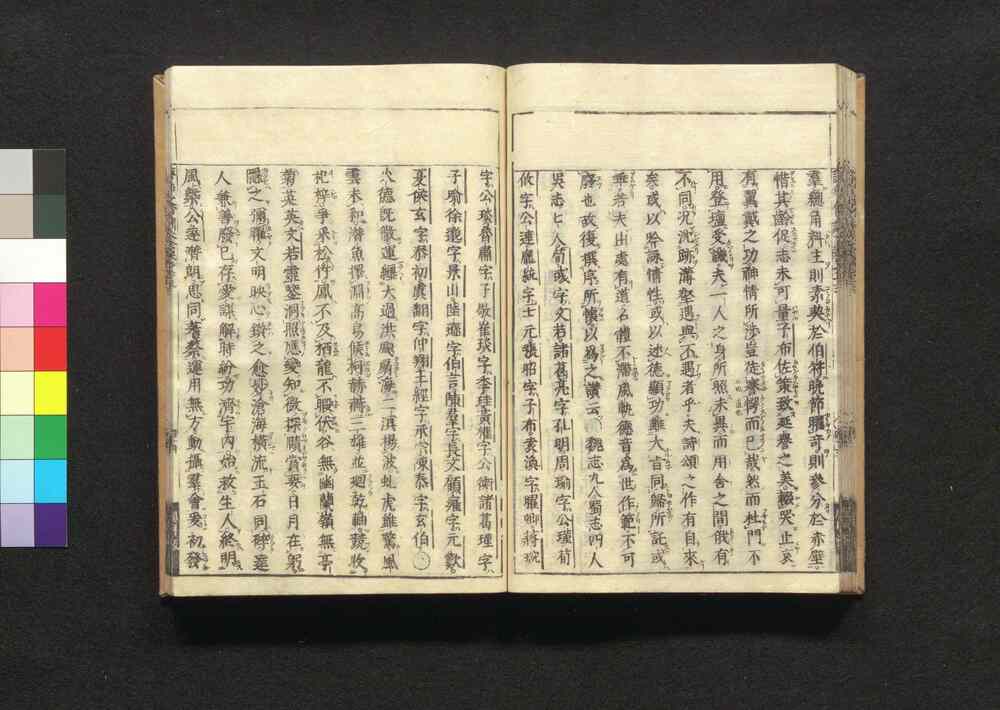 羣龍角料主則素契於伯符晚節曜奇則參分於赤壁
惜其齡促志未可量子布佐策致延譽之美輟哭止哀
有翼戴之功神情所涉豈徒謇愕而已哉然而杜門不
用登壇受譏夫一人之身所照未異而用舍之間俄有
不同況沈跡溝壑遇與不遇者乎夫詩頌之作有自來
矣或以吟詠情性或以述德顯功雖大旨同歸所託或
乖若夫出處有道名體不滯風軌德音爲世作範不可
廢也故復撰序所懷以爲之讚云 魏志九人蜀志四人
吳志七人荀彧字文若諸葛亮字孔明周瑜字公瑾荀
攸字公達龐統字士元張昭字子布袁渙字曜卿蔣琬
字公琰魯肅字子敬崔琰字季珪黃權字公衡諸葛瑾字
子瑜徐邈字景山陸遜字伯言陳羣字長文顧雍字元歎
夏侯玄字泰初虞翻字仲翔王經字承宗陳泰字玄伯
火德既微運纏大過洪飆扇海二溟揚波虬虎雖驚風
雲未和潛魚擇淵高鳥候柯赫赫三雄並廻乾軸競收
杞梓爭采松竹鳳不及栖龍不暇伏谷無幽蘭嶺無亭
菊英英文若靈鑒洞照應變知微探賾賞要日月在躬
隱之彌曜文明映心鑽之愈妙滄海橫流玉石同碎達
人兼善廢己存愛謀解時紛功濟宇內始救生人終明
風槩公達潛朗思同蓍蔡運用無方動攝羣會爰初發